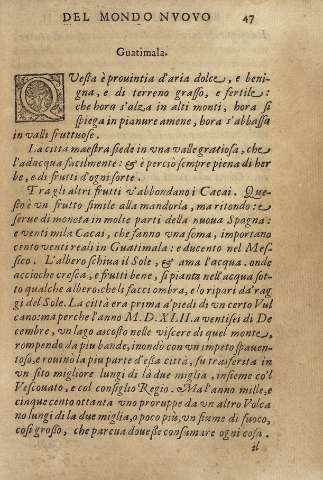 DEL MONDO NVOVO 47
Guatimala.
QVesta è prouintia d'aria dolce, e beni-
gna, e di terreno grasso, e fertile:
che hora s'alza in alti monti, hora si
spiega in pianure amene, hora s'abbassa
in valli fruttuose.
La città maestra siede in vna valle gratiosa, che
l'adacqua facilmente: & è perciò sempre piena di her
be, e di frutti d'ogni sorte.
Tra gli altri frutti v'abbondano i Cacai. Que-
sto è vn frutto simile alla mandorla, ma ritondo: e
serue di moneta in molte parti della nuoua Spagna:
e venti mila Cacai, che fanno vna soma, importano
cento venti reali in Guatimala: e ducento nel Mes-
sico. L'albero schiua il Sole, & ama l'acqua. onde
acciò che cresca, e frutti bene, si pianta nell'acqua sot-
to qualche albero che li facci ombra, e lo ripari da' rag
gi del Sole. La città era prima à piedi di vn certo Vul
cano: ma perche l'anno M.D.XLII. a ventisei di De
cembre, vn lago ascosto nelle viscere di quel monte,
rompendo da piu bande, inondò con vn impeto spauen-
toso, e rouinò la piu parte d'essa città, fu trasferita in
vn sito migliore lungi di là due miglia, insieme co'l
Vescouato, e col consiglio Regio. Ma l'anno mille, e
cinquecento ottanta vno proruppe da vn altro Volca
no lungi di la due miglia, o poco più, vn fiume di fuoco,
così grosso, che parea douesse consumare ogni cosa.
il